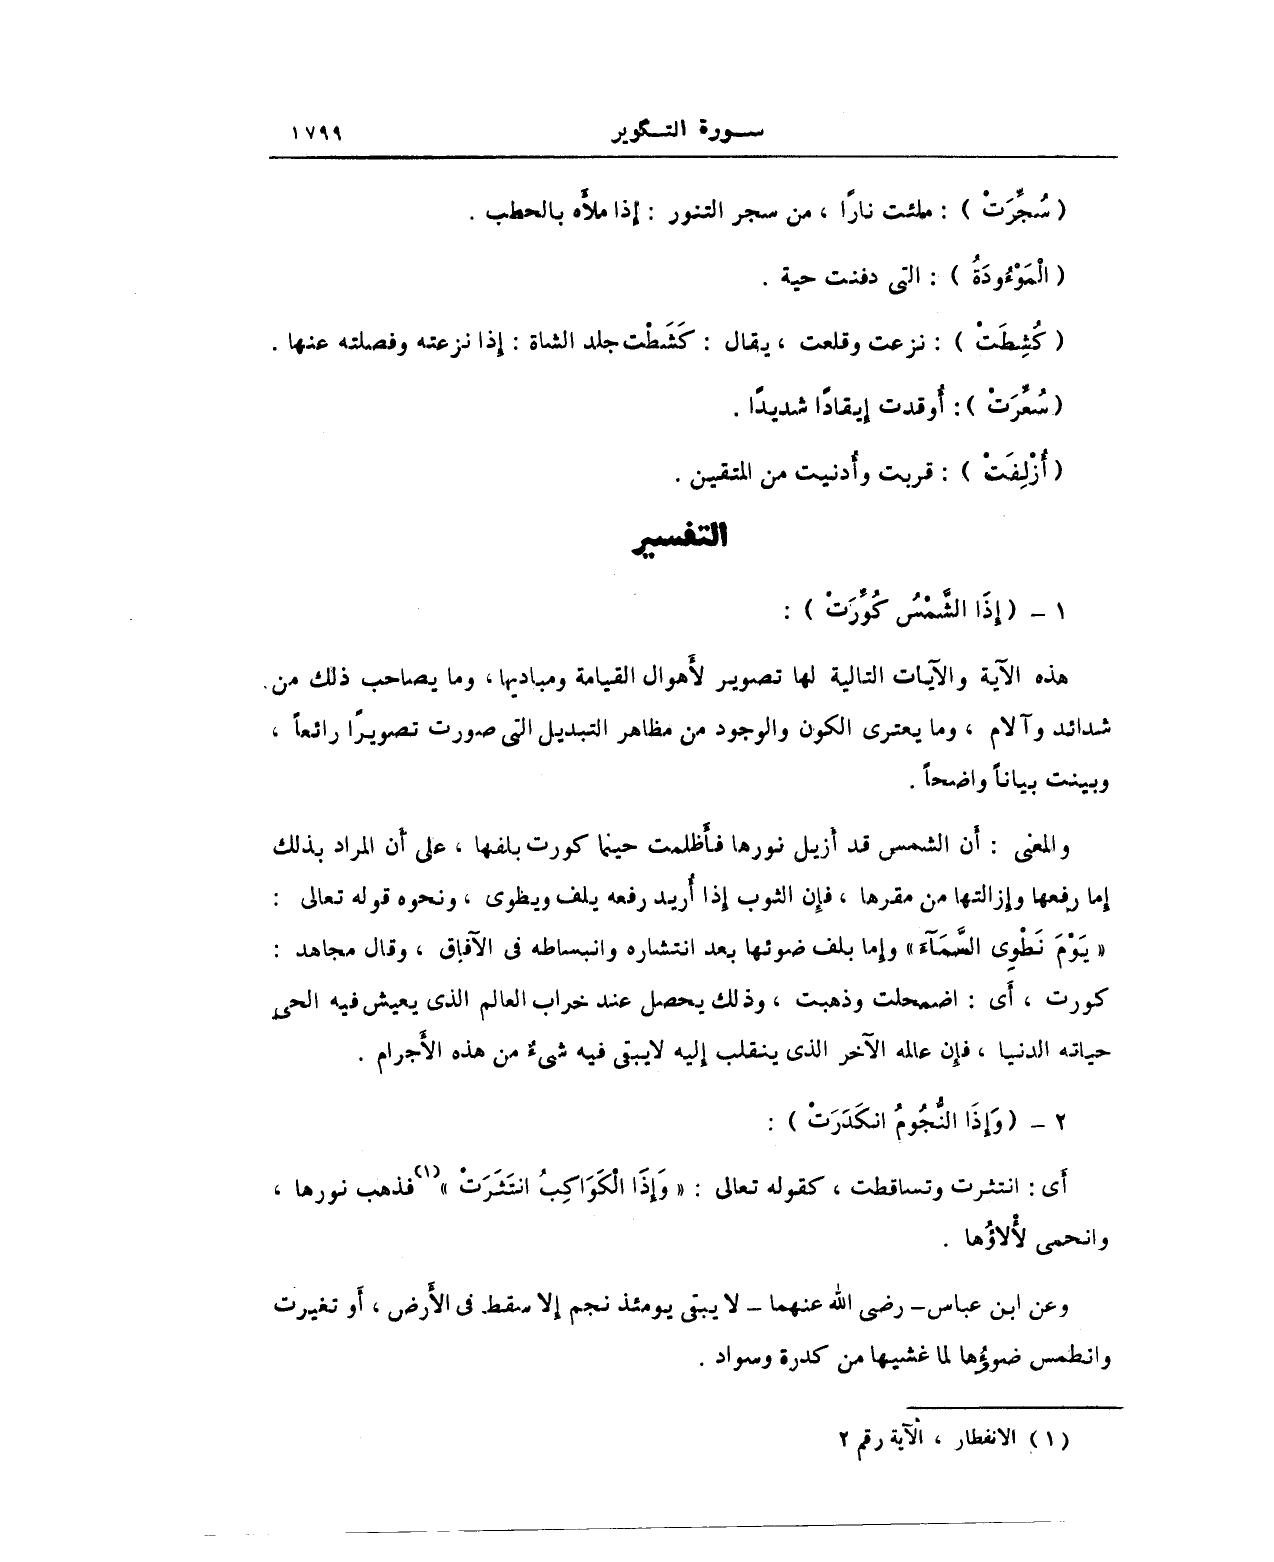 سورة التكوير ١٧٩٩
( سُجِّرَتْ ) : ملئت نارًا ، من سجر التنور : إذا ملأه بالحطب .
( الْمَوْءُودَةُ ) : التى دفنت حية .
( كُشِطَتْ ) : نزعت وقلعت ، يقال : كَشَطْت جلد الشاة : إذا نزعته وفصلته عنها .
( سُعِّرَتْ ) : أُوقدت إيقادًا شديدًا .
( أُزْلِفَتْ ) : قربت وأُدنيت من المتقين .
التفسير
١ – ( إِذَا الشَّمْسُ كُوِّرَتْ ) :
هذه الآية والآيات التالية لها تصوير لأَهوال القيامة ومباديها ، وما يصاحب ذلك من
شدائد وآلام ، وما يعترى الكون والوجود من مظاهر التبديل التى صورت تصويرًا رائعاً ،
وبينت بياناً واضحاً .
والمعنى : أَن الشمس قد أُزيل نورها فأَظلمت حينما كورت بلفها ، على أَن المراد بذلك
إما رفعها وإزالتها من مقرها ، فإن الثوب إذا أُريد رفعه يلف ويطوى ، ونحوه قوله تعالى :
« يَوْمَ نَطْوِى السَّمَآءَ » وإما بلف ضوئها بعد انتشاره وانبساطه فى الآفاق ، وقال مجاهد :
كورت ، أَى : اضمحلت وذهبت ، وذلك يحصل عند خراب العالم الذى يعيش فيه الحى
حياته الدنيا ، فإن عالمه الآخر الذى ينقلب إليه لايبقى فيه شىءٌ من هذه الأَجرام .
٢ – ( وَإِذَا النُّجُومُ انكَدَرَتْ ) :
أَى : انتثرت وتساقطت ، كقوله تعالى : « وَإِذَا الْكَوَاكِبُ انتَثَرَتْ »(١) فذهب نورها ،
وانحمى لأْلاؤُها .
وعن ابن عباس– رضى الله عنهما – لا يبقى يومئذ نجم إلا سقط فى الأَرض ، أَو تغيرت
وانطمس ضوؤُها لما غشيها من كدرة وسواد .
( ١ ) الانفطار ، الآية رقم ٢